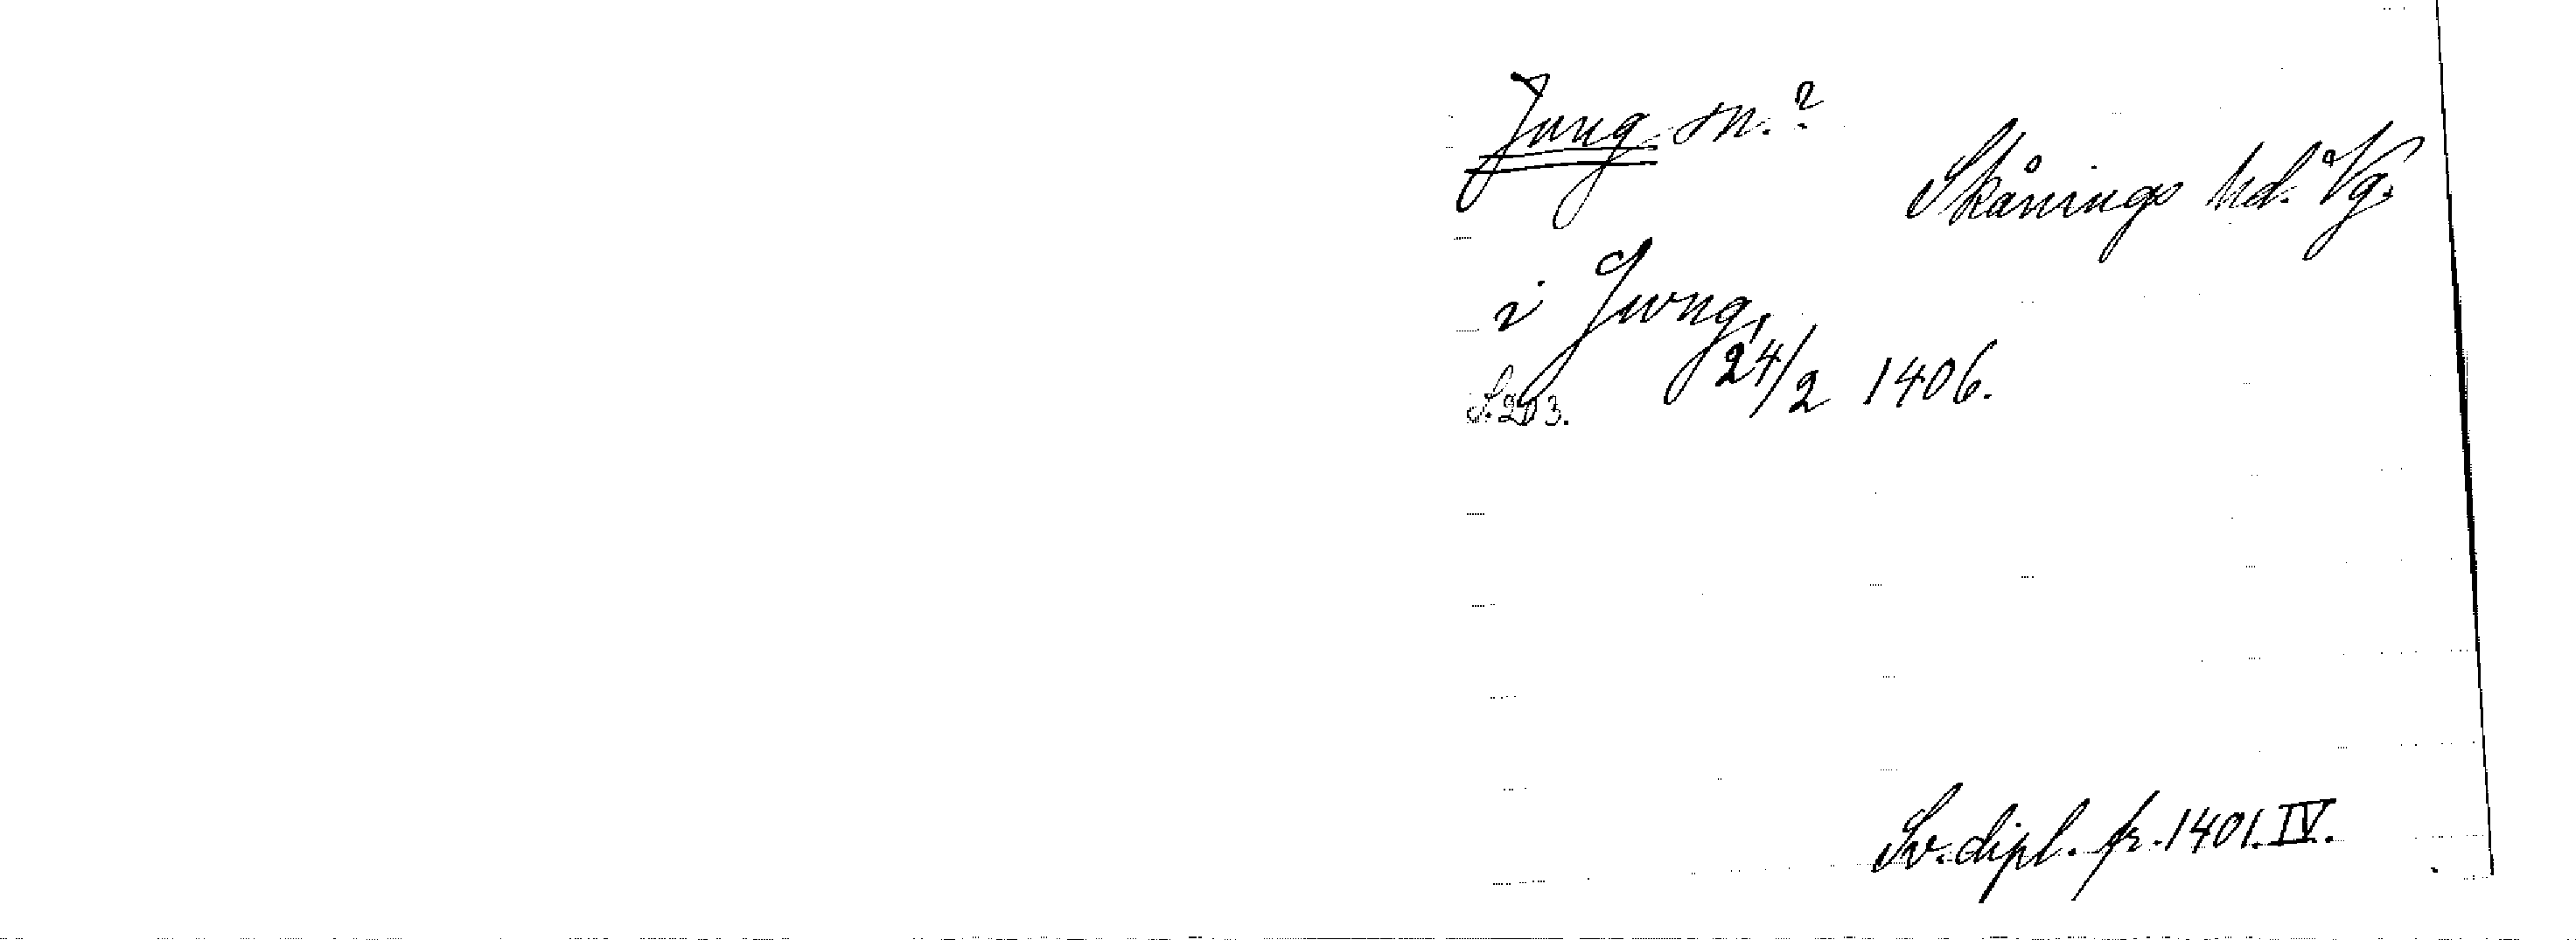 Jung sn.?
Skånings hd. Vg.
i Jwng,
24/2 1406.
S. 203.
Sv. dipl. fr. 1401. IV.